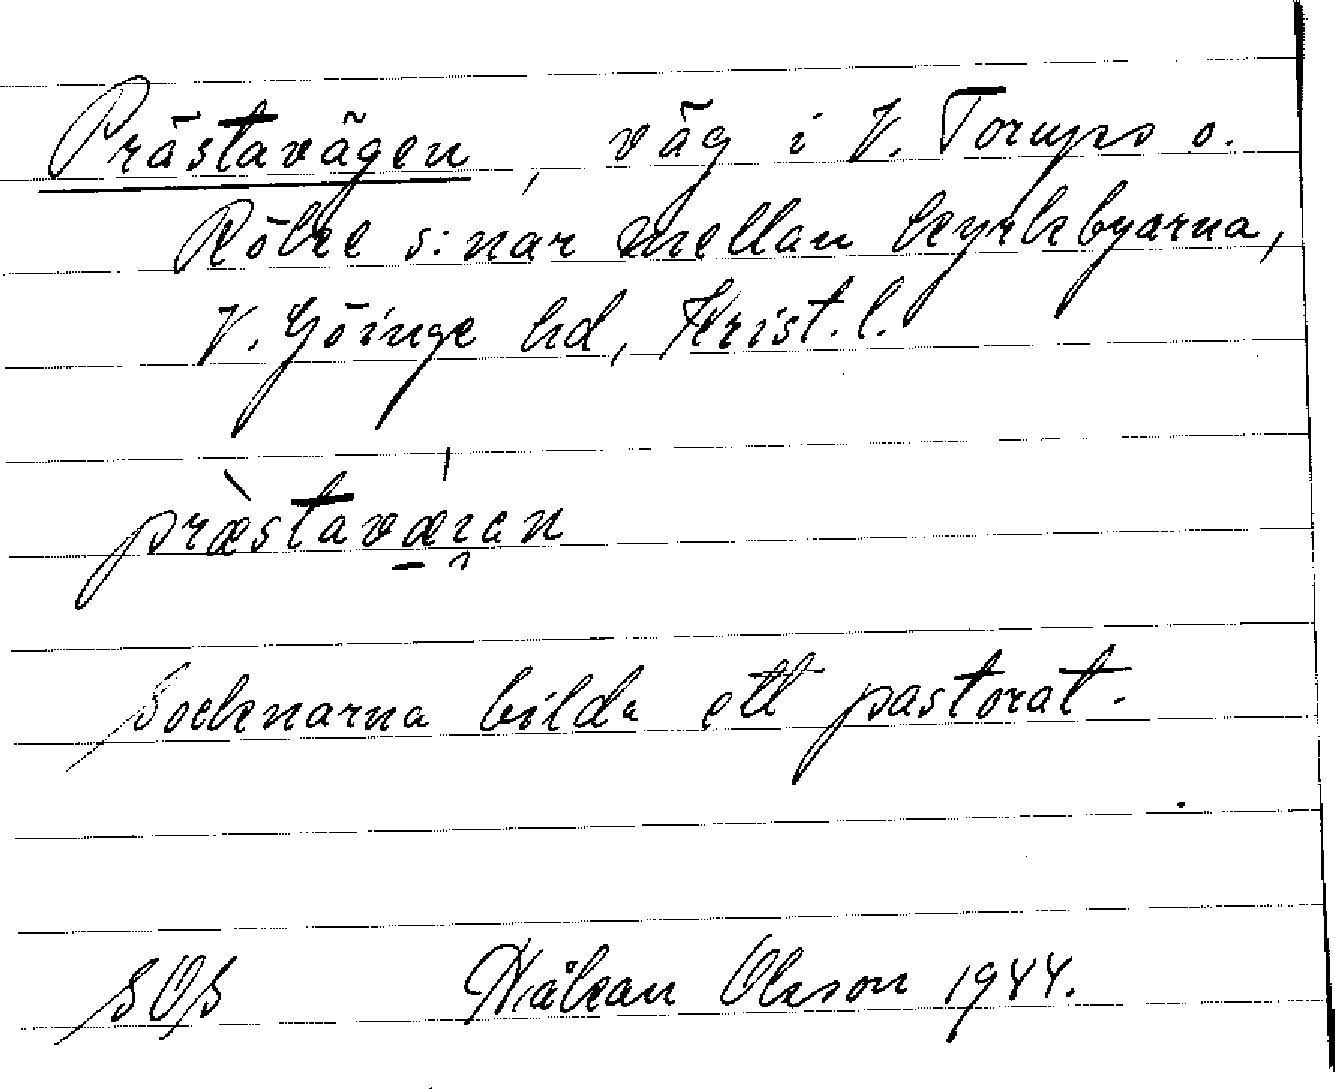 Prästavägen, väg i V. Torups o.
Röke s:nar mellan kyrkbyarna,
V. Göinge hd, Krist. l.
præ̀stavǽ̠i̯an
Socknarna bilda ett pastorat.
SOS Håkan Olsson 1944.